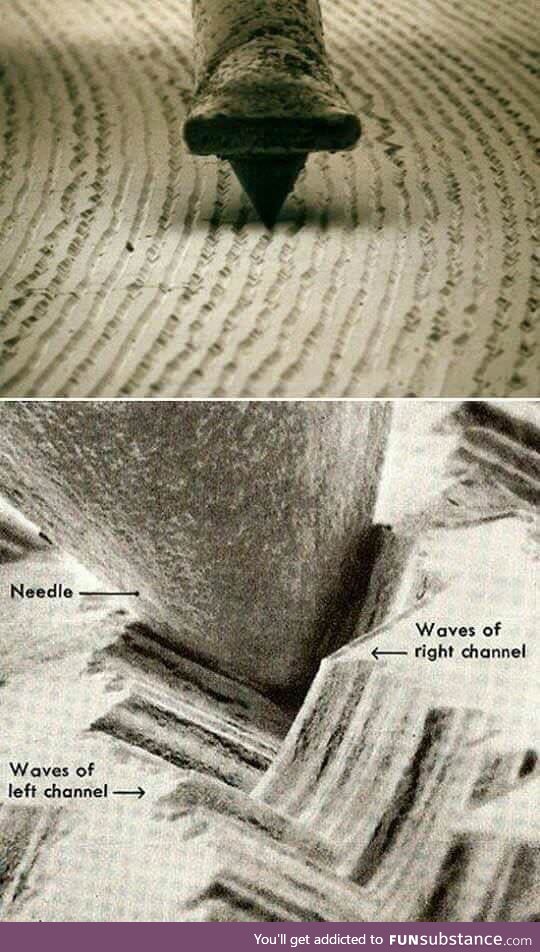 Needle
Waves of
right channel
Waves of
left channel
You'll get addicted to FUNsubstance.com